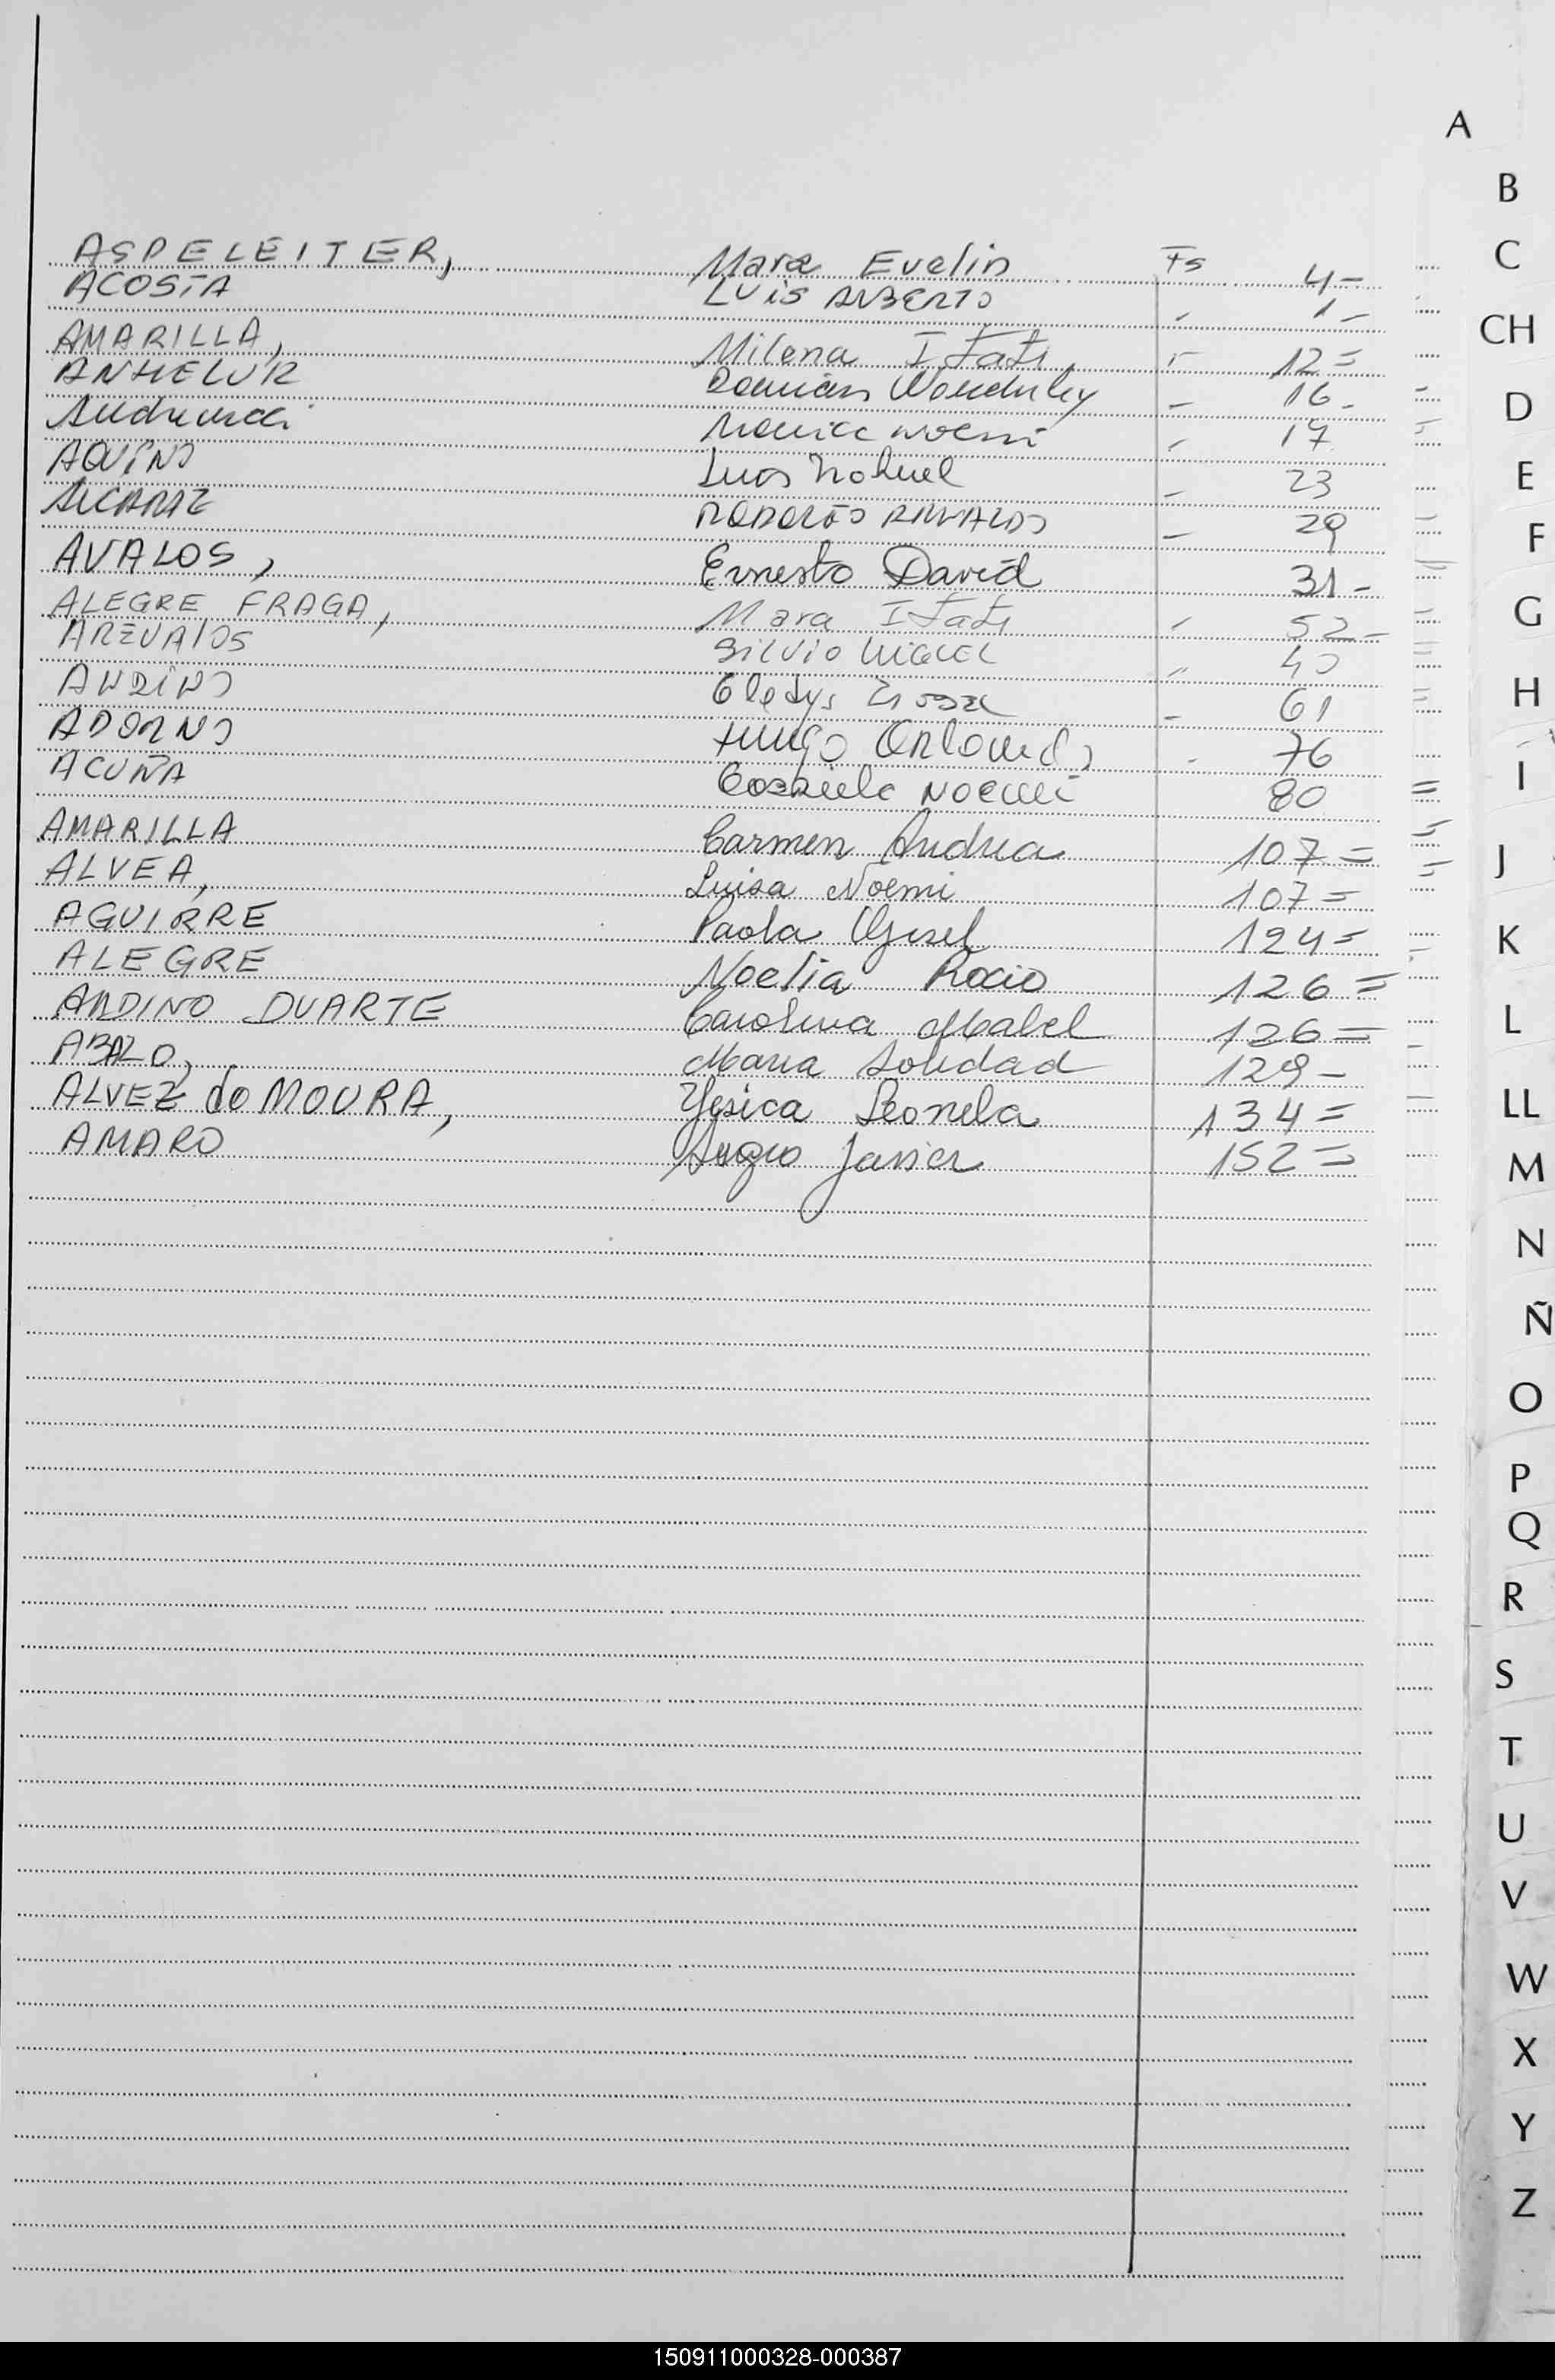 A
B
C
CH
D
E
F
G
H
I
J
K
L
LL
M
N
Ñ
O
P
Q
R
S
T
U
V
W
X
Y
Z
ASPELEITER, Mara Evelin Fs 4-
ACOSTA LUIS ALBERTO - 1-
AMARILLA, Milena Itati - 12=
Damián - 16-
Noemi - 17
AQUINO Nahuel - 23
ALCARAZ RODOLFO - 29
AVALOS, Ernesto David 31-
ALEGRE FRAGA, Mara Itati - 52-
AREVALOS SILVIO MIGUEL - 40
ANDINO Gladys - 61
ADORNO Hugo Orlando - 76
ACUÑA Gabriela NOEMI 80
AMARILLA Carmen Andrea 107=
ALVEA, Luisa Noemi 107=
AGUIRRE Paola Gisel 124=
ALEGRE Noelia Rocio 126=
ANDINO DUARTE Carolina Mabel 126=
ABALO, Maria Soledad 129-
ALVEZ de MOURA, Yesica Leonela 134=
AMARO Sergio Javier 152=
150911000328-000387